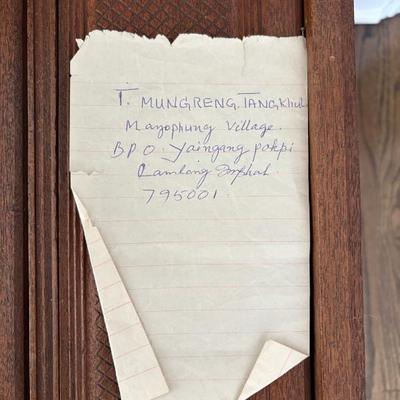 T. MUNGRENG. TANGKhuL
Mayophung Village.
B P O. Yaingang pokpi
Lamlong Imphal.
795001